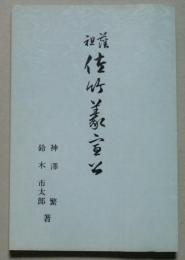 藩祖
佐竹義宣公
神澤 繁
鈴木 市太郎 著